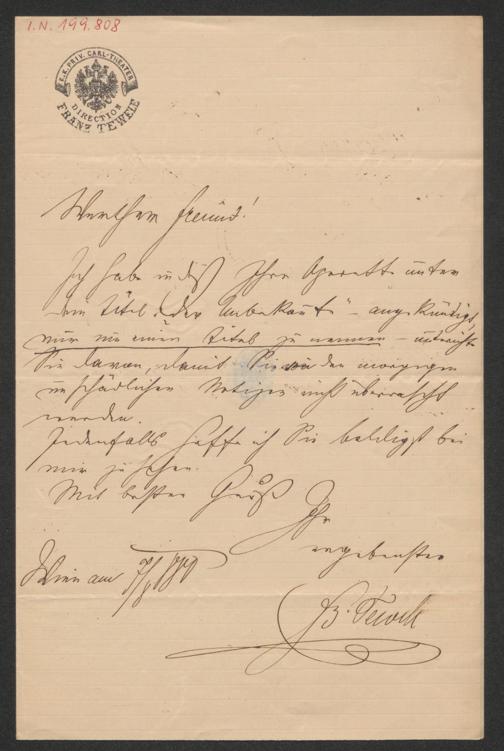 I.N. 199.808
K.K. PRIV. CARL-THEATER
DIRECTION
FRANZ TEWELE
Werthester Freund!
Ich habe indeß Ihre Operette unter
dem Titel „der Unbekannte" – angekündigt,
nur um einen Titel zu nennen –
Sie davon, damit Sie von den morgigen
unschädlichen Notizen nicht überrascht
werden.
Jedenfalls hoffe ich Sie baldigst bei
mir zu sehen.
Mit bestem Gruß
Ihr
ergebenster
Wien am 1880
Fz. Tewele